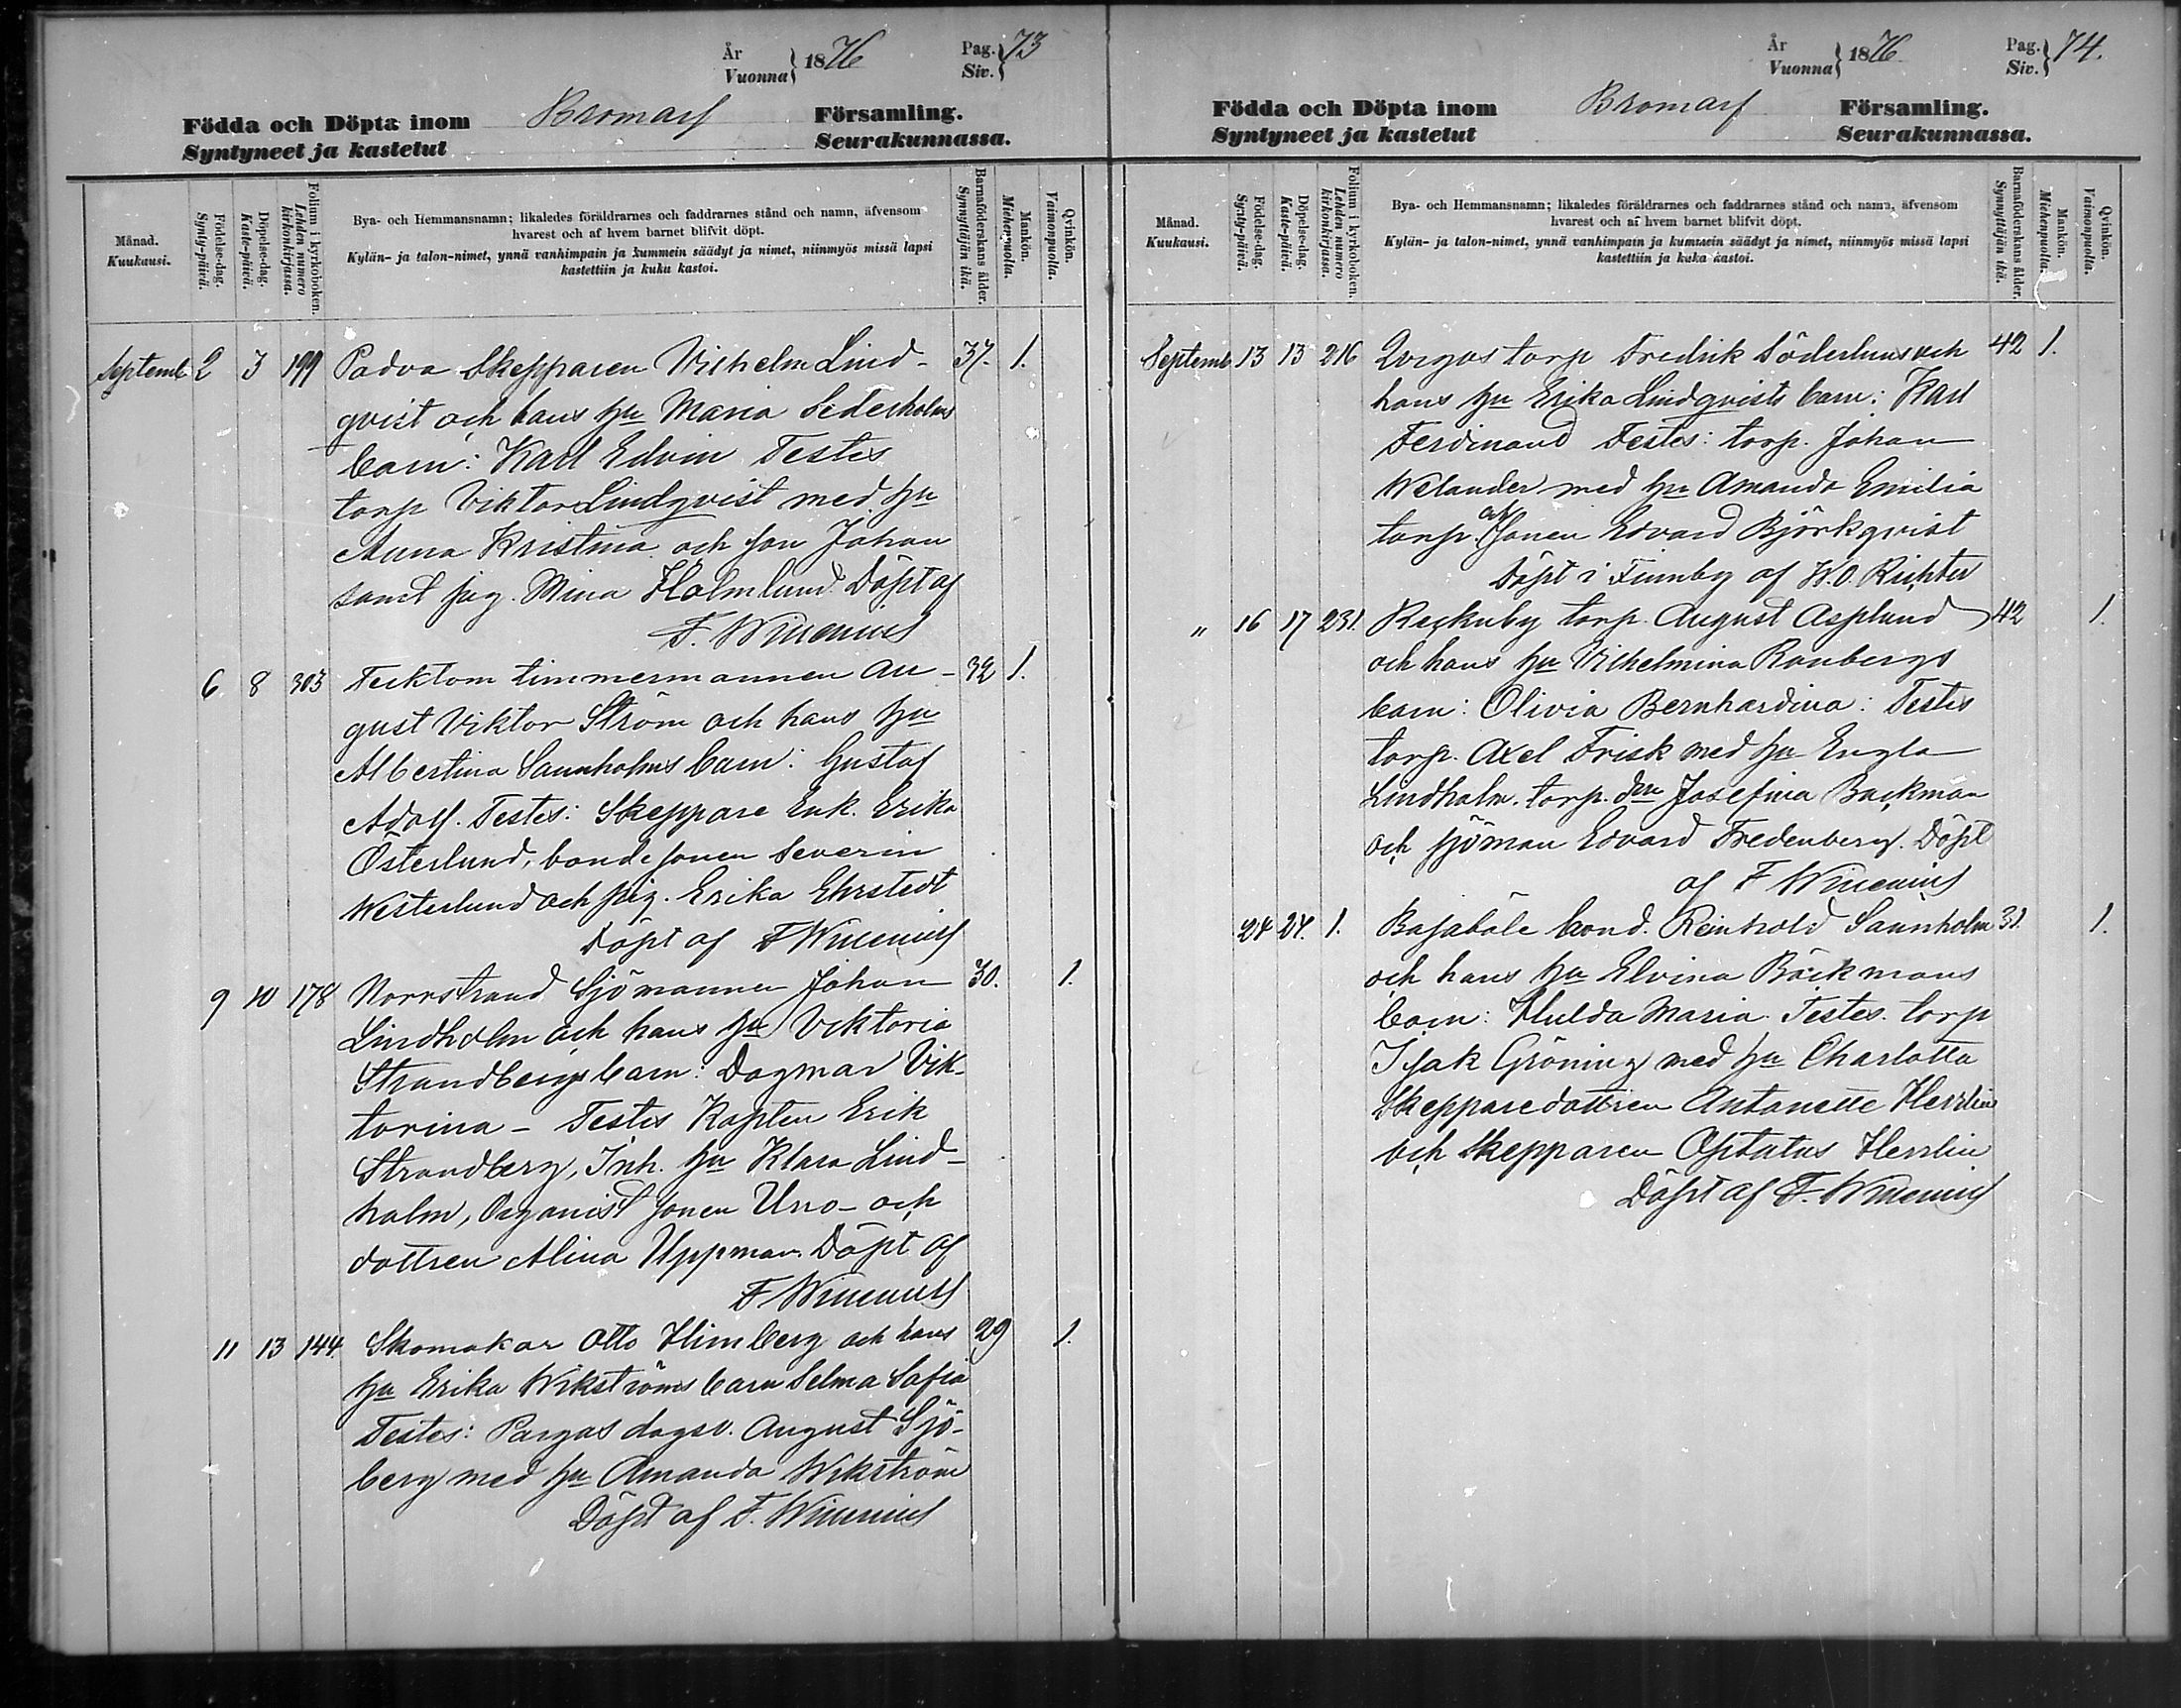 År
Vuonna 1876
Pag.
Siv. 73
Födda och Döpta inom Bromarf Församling.
Syntyneet ja kastetut Seurakunnassa.
Månad.
Kuukausi.
Födelse-dag.
Synty-päivä.
Döpelse-dag.
Kaste-päivä.
Folium i kyrkoboken.
Lehden numero
kirkonkirjassa.
Bya- och Hemmansnamn; likaledes föräldrarnes och faddrarnes stånd och namn, äfvensom
hvarest och af hvem barnet blifvit döpt.
Kylän- ja talon-nimet, ynnä vanhimpain ja kummein säädyt ja nimet, niinmyös missä lapsi
kastettiin ja kuka kastoi.
Barnaföderskans ålder.
Synnyttäjän ikä.
Mankön.
Miehenpuolta.
Qvinkön.
Vaimonpuolta.
Septemb 2 3 199 Padva Skepparen Wilhelm Lind- 37. 1.
qvist och hans hu Maria Sederholms
barn: Karl Edvin Testes
torp Viktor Lindqvist med hu
Anna Kristina och son Johan
samt pig. Mina Holmlund Döpt af
F. Winenius
6 8 303 Tecktom timmermannen Au- 32 1.
gust Viktor Ström och hans hu
Albertina Saunholms barn: Gustaf
Adolf. Testes: Skeppare Enk. Erika
Österlund, bondesonen Severin
Westerlund och pig. Erika Ehrstedt
Döpt af F Winenius
9 10 178 Norrstrand Sjömannen Johan 30. 1.
Lindholm och hans hu Viktoria
Strandbergs barn: Dagmar Vik-
torina - Testes Kapten Erik
Strandberg, Inh. hu Klara Lind-
holm, Organist sonen Uno- och
dottren Alina Uppman. Döpt af
F Winenius
11 13 144. Skomakar Otto Himberg och hans 29 1.
hu Erika Wikströms barn Selma Sofia
Testes: Pargas dagsv. August Sjö-
berg med hu Amanda Wikström
Döpt af F. Winenius
År
Vuonna 1876
Pag.
Siv. 74.
Födda och Döpta inom Bromarf Församling.
Syntyneet ja kastetut Seurakunnassa.
Månad.
Kuukausi.
Födelse-dag.
Synty-päivä.
Döpelse-dag.
Kaste-päivä.
Folium i kyrkoboken.
Lehden numero
kirkonkirjassa.
Bya- och Hemmansnamn; likaledes föräldrarnes och faddrarnes stånd och namn, äfvensom
hvarest och af hvem barnet blifvit döpt.
Kylän- ja talon-nimet, ynnä vanhimpain ja kummein säädyt ja nimet, niinmyös missä lapsi
kastettiin ja kuka kastoi.
Barnaföderskans ålder.
Synnyttäjän ikä.
Mankön.
Miehenpuolta.
Qvinkön.
Vaimonpuolta.
Septemb 13 13 216 torp Fredrik Söderlund och 42 1.
hans hu Erika Lindqvists barn: Karl
Ferdinand Testes: torp. Johan
Welander med hu Amanda Emilia
torp. och sonen Edvard Björkqvist
Döpt i Finnby af W.O. Richter
" 16 17 231. Reckuby torp. August Asplund 42 1.
och hans hu Vilhelmina Ranbergs
barn: Olivia Bernhardina: Testes
torp. Axel Frisk med hu Engla
Lindholm. torp. dn Josefina Backman
och sjöman Edvard Fredenberg. Döpt
af F Winenius
24 24. 1. Basaböle bond. Reinhold Saunholm 31. 1.
och hans hu Elvina Bäckmans
barn: Hulda Maria. Testes. torp
Isak Gröning med hu Charlotta
Skepparedottren Antonette Herrlin
och skepparen Optatus Herrlin
Döpt af F. Winenius